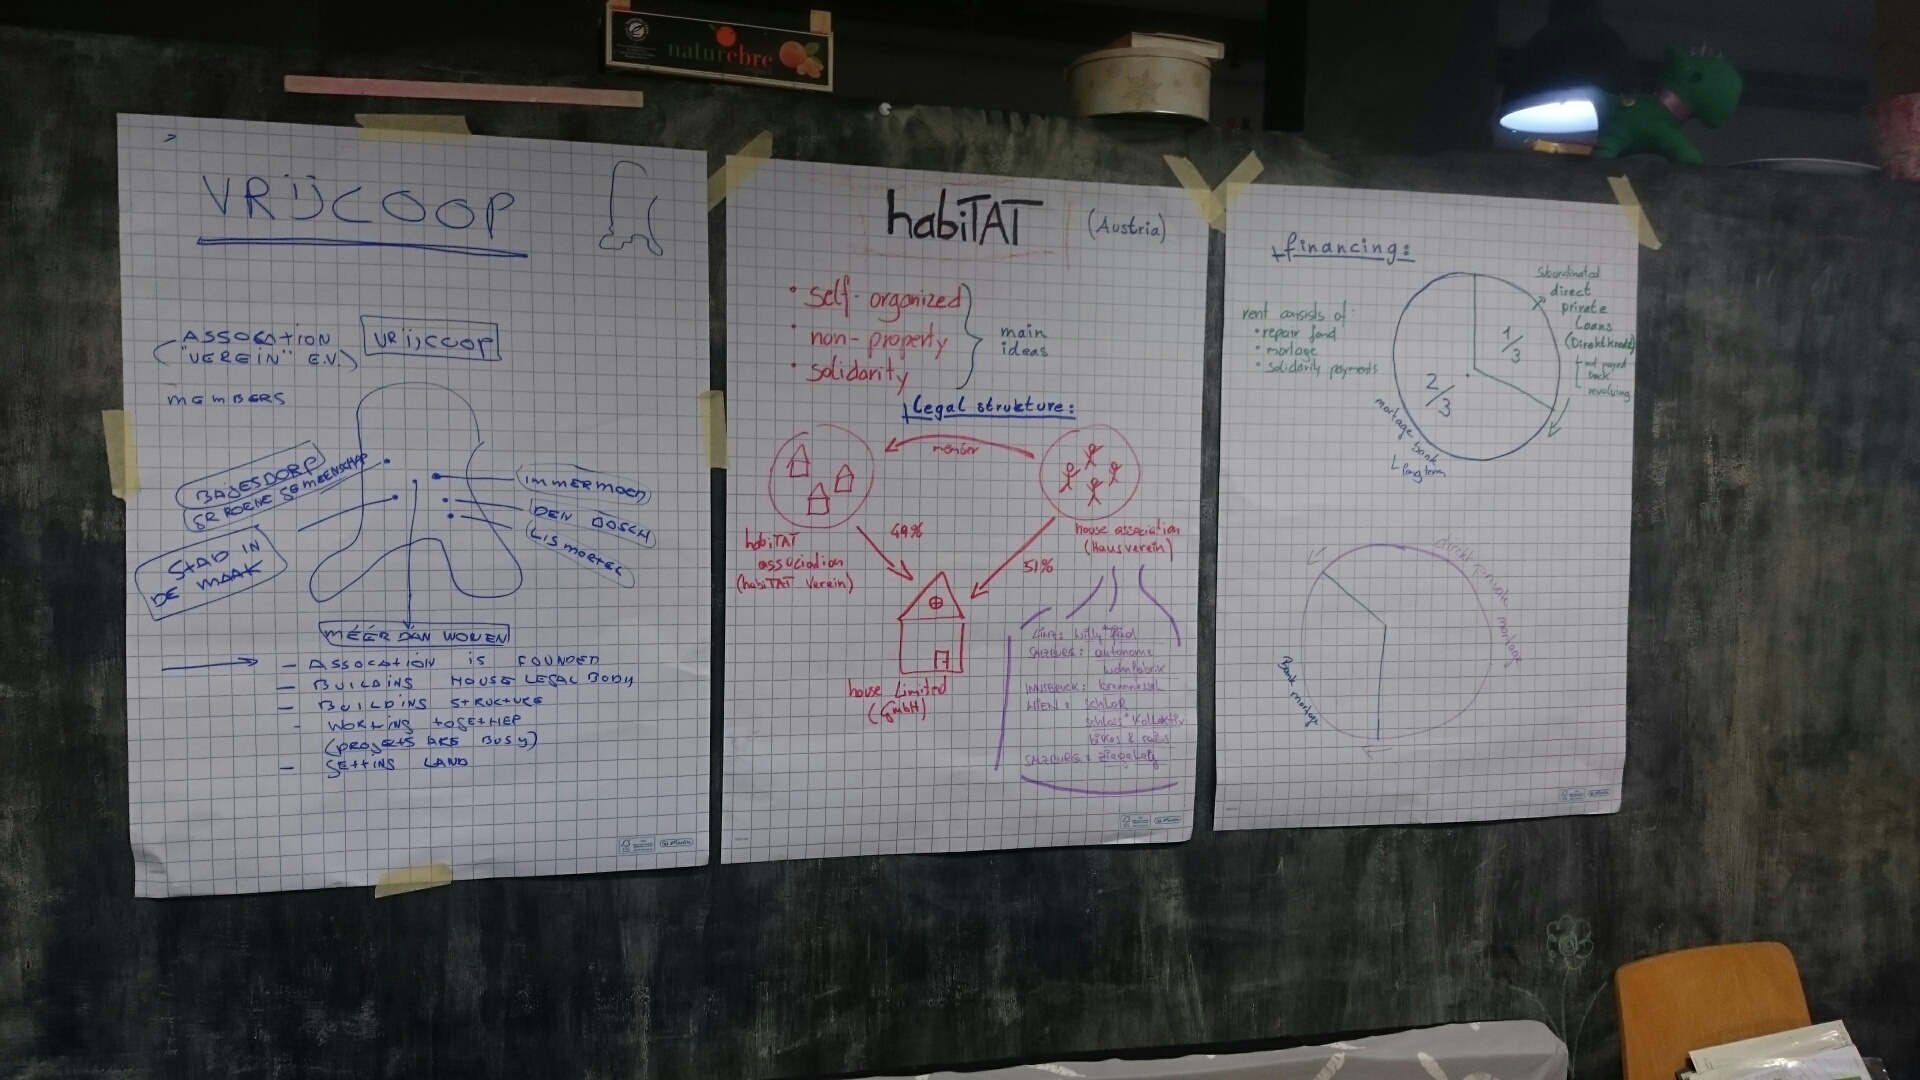 naturebre
VRIJCOOP
ASSOCATION
("VEREIN" E.V.)
VRIJCOOP
MEMBERS
BAJESDORP
GROENE GEMEENSCHAP
STAD IN
DE MAAK
DEN BOSCH
MÉÉR DAN WONEN
- ASSOCATION IS FOUNDED
- BUILDING HOUSE LEGAL BODY
- BUILDING STRUCTURE
- WORKING TOGETHER
(PROJECTS ARE BUSY)
- GETTING LAND
habiTAT (Austria)
• self-organized
• non-property
• solidarity
main
ideas
legal strukture:
member
49%
51%
habiTAT
association
(habiTAT Verein)
house association
(Hausverein)
house Limited
(GmbH)
LINZ: willy*fred
SALZBURG: autonome
wohnfabrik
INNSBRUCK: brennnessel
WIEN: SchloR
bikes & rails
SALZBURG:
financing:
rent consists of:
• repair fond
• mortage
• solidarity payments
1/3
2/3
subordinated
direct
private
Loans
(Direktkredit)
not payed
back
revolving
mortage bank
long term
mortage
Bank mortage